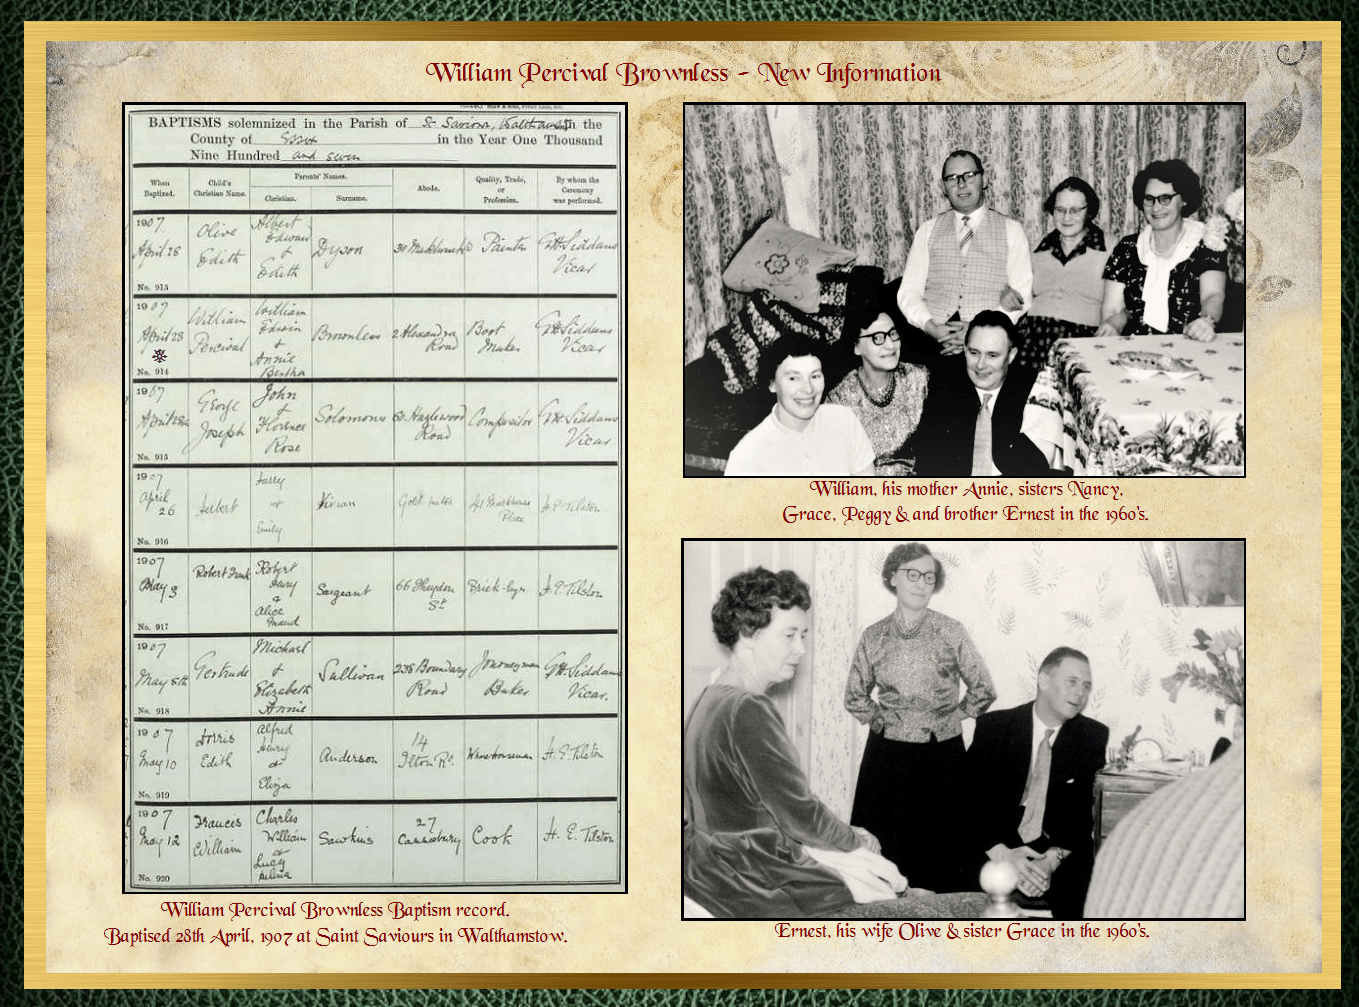 William Percival Brownless - New Information
BAPTISMS solemnized in the Parish of St Saviour, Walthamstow in the
County of Essex in the Year One Thousand
Nine Hundred and seven
When Baptized. Child's Christian Name. Parents' Names. Christian. Surname. Abode. Quality, Trade, or Profession. By whom the Ceremony was performed.
1907 April 28 Olive Edith Albert Edward & Edith Dyson 30 Painter G H Siddans Vicar
No. 913
1907 April 28 William Percival William Edwin & Annie Bertha Brownless 2 Alexandra Road Boot Maker G H Siddans Vicar
No. 914
1907 April 28 George Joseph John & Florence Rose Solomons 60 Hazlewood Road Compositor G H Siddans Vicar
No. 915
1907 April 26 Herbert Harry & Emily Vivian
No. 916
1907 May 3 Robert Frank Robert Henry & Alice Maud Sargeant 66 St H. E. Tilston
No. 917
1907 May 8th Gertrude Michael & Elizabeth Annie Sullivan 238 Boundary Road Journeyman Baker G H Siddans Vicar.
No. 918
1907 May 10 Edith Alfred Henry & Eliza Anderson 14 Ilton Rd. Warehouseman H. E. Tilston
No. 919
1907 May 12 Frances William Charles William & Lucy Selina Sawkins 27 Cook H. E. Tilston
No. 920
William Percival Brownless Baptism record.
Baptised 28th April, 1907 at Saint Saviours in Walthamstow.
William, his mother Annie, sisters Nancy,
Grace, Peggy & and brother Ernest in the 1960's.
Ernest, his wife Olive & sister Grace in the 1960's.